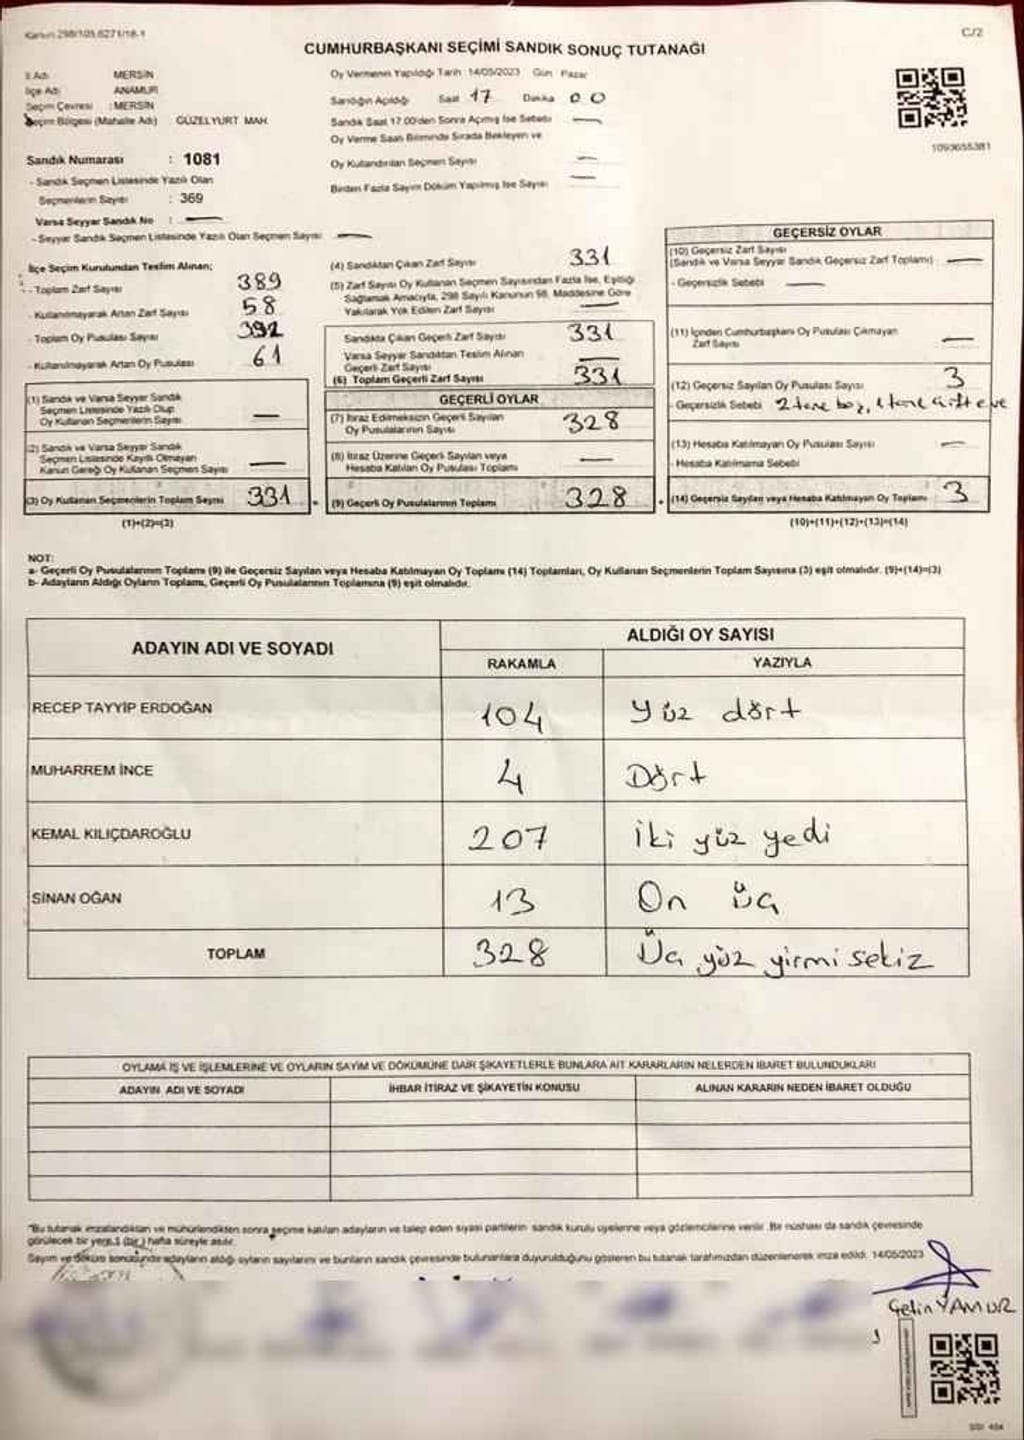 Kanun 298/105,6271/18-1
C/2
CUMHURBAŞKANI SEÇİMİ SANDIK SONUÇ TUTANAĞI
İl Adı MERSİN
İlçe Adı ANAMUR
Seçim Çevresi : MERSİN
Seçim Bölgesi (Mahalle Adı) GÜZELYURT MAH.
Oy Vermenin Yapıldığı Tarih :14/05/2023 Gün Pazar
Sandığın Açıldığı Saat 17 Dakika 00
Sandık Saat 17.00'den Sonra Açılmış İse Sebebi —
Oy Verme Saati Bitiminde Sırada Bekleyen ve
Oy Kullandırılan Seçmen Sayısı —
Birden Fazla Sayım Döküm Yapılmış İse Sayısı —
1093655381
Sandık Numarası : 1081
- Sandık Seçmen Listesinde Yazılı Olan
Seçmenlerin Sayısı : 369
Varsa Seyyar Sandık No : —
- Seyyar Sandık Seçmen Listesinde Yazılı Olan Seçmen Sayısı —
İlçe Seçim Kurulundan Teslim Alınan;
- Toplam Zarf Sayısı 389
- Kullanılmayarak Artan Zarf Sayısı 58
- Toplam Oy Pusulası Sayısı 392
- Kullanılmayarak Artan Oy Pusulası 61
(1) Sandık ve Varsa Seyyar Sandık
Seçmen Listesinde Yazılı Olup
Oy Kullanan Seçmenlerin Sayısı —
(2) Sandık ve Varsa Seyyar Sandık
Seçmen Listesinde Kayıtlı Olmayan
Kanun Gereği Oy Kullanan Seçmen Sayısı —
(3) Oy Kullanan Seçmenlerin Toplam Sayısı 331
(1)+(2)=(3)
(4) Sandıktan Çıkan Zarf Sayısı 331
(5) Zarf Sayısı Oy Kullanan Seçmen Sayısından Fazla İse, Eşitliği
Sağlamak Amacıyla, 298 Sayılı Kanunun 98. Maddesine Göre
Yakılarak Yok Edilen Zarf Sayısı —
Sandıkta Çıkan Geçerli Zarf Sayısı 331
Varsa Seyyar Sandıktan Teslim Alınan
Geçerli Zarf Sayısı —
(6) Toplam Geçerli Zarf Sayısı 331
GEÇERLİ OYLAR
(7) İtiraz Edilmeksizin Geçerli Sayılan
Oy Pusulalarının Sayısı 328
(8) İtiraz Üzerine Geçerli Sayılan veya
Hesaba Katılan Oy Pusulası Toplamı —
(9) Geçerli Oy Pusulalarının Toplamı 328
GEÇERSİZ OYLAR
(10) Geçersiz Zarf Sayısı
(Sandık ve Varsa Seyyar Sandık Geçersiz Zarf Toplamı) —
- Geçersizlik Sebebi —
(11) İçinden Cumhurbaşkanı Oy Pusulası Çıkmayan
Zarf Sayısı —
(12) Geçersiz Sayılan Oy Pusulası Sayısı 3
- Geçersizlik Sebebi 2 tane boş, 1 tane çift eve
(13) Hesaba Katılmayan Oy Pusulası Sayısı —
- Hesaba Katılmama Sebebi
(14) Geçersiz Sayılan veya Hesaba Katılmayan Oy Toplamı 3
(10)+(11)+(12)+(13)=(14)
NOT:
a- Geçerli Oy Pusulalarının Toplamı (9) ile Geçersiz Sayılan veya Hesaba Katılmayan Oy Toplamı (14) Toplamları, Oy Kullanan Seçmenlerin Toplam Sayısına (3) eşit olmalıdır. (9)+(14)=(3)
b- Adayların Aldığı Oyların Toplamı, Geçerli Oy Pusulalarının Toplamına (9) eşit olmalıdır.
ADAYIN ADI VE SOYADI
ALDIĞI OY SAYISI
RAKAMLA YAZIYLA
RECEP TAYYİP ERDOĞAN 104 Yüz dört
MUHARREM İNCE 4 Dört
KEMAL KILIÇDAROĞLU 207 iki yüz yedi
SİNAN OĞAN 13 On üç
TOPLAM 328 Üç yüz yirmi sekiz
OYLAMA İŞ VE İŞLEMLERİNE VE OYLARIN SAYIM VE DÖKÜMÜNE DAİR ŞİKAYETLERLE BUNLARA AİT KARARLARIN NELERDEN İBARET BULUNDUKLARI
ADAYIN ADI VE SOYADI İHBAR İTİRAZ VE ŞİKAYETİN KONUSU ALINAN KARARIN NEDEN İBARET OLDUĞU
*Bu tutanak imzalandıktan ve mühürlendikten sonra seçime katılan adayların ve talep eden siyasi partilerin sandık kurulu üyelerine veya gözlemcilerine verilir. Bir nüshası da sandık çevresinde
görülecek bir yere 1 (bir) hafta süreyle asılır.
Sayım ve döküm sonucunda adayların aldığı oyların sayılarını ve bunların sandık çevresinde bulunanlara duyurulduğunu gösteren bu tutanak tarafımızdan düzenlenerek imza edildi. 14/05/2023
Çetin YAMUR